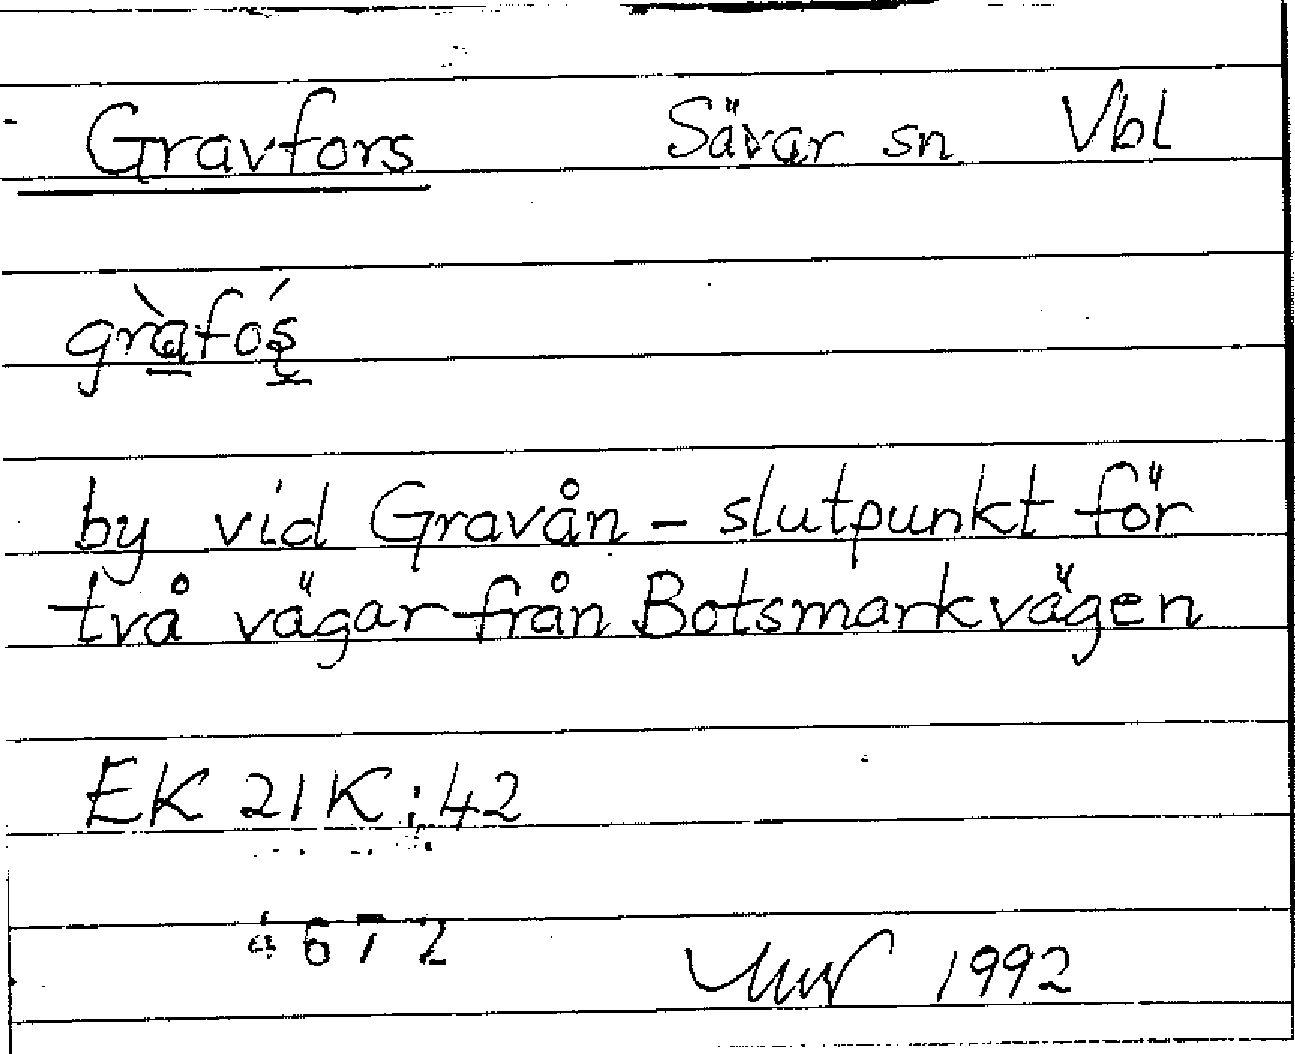 Gravfors Sävar sn Vbl
gràfós
by vid Gravån - slutpunkt för
två vägar från Botsmarkvägen
EK 21K:42
672
1992